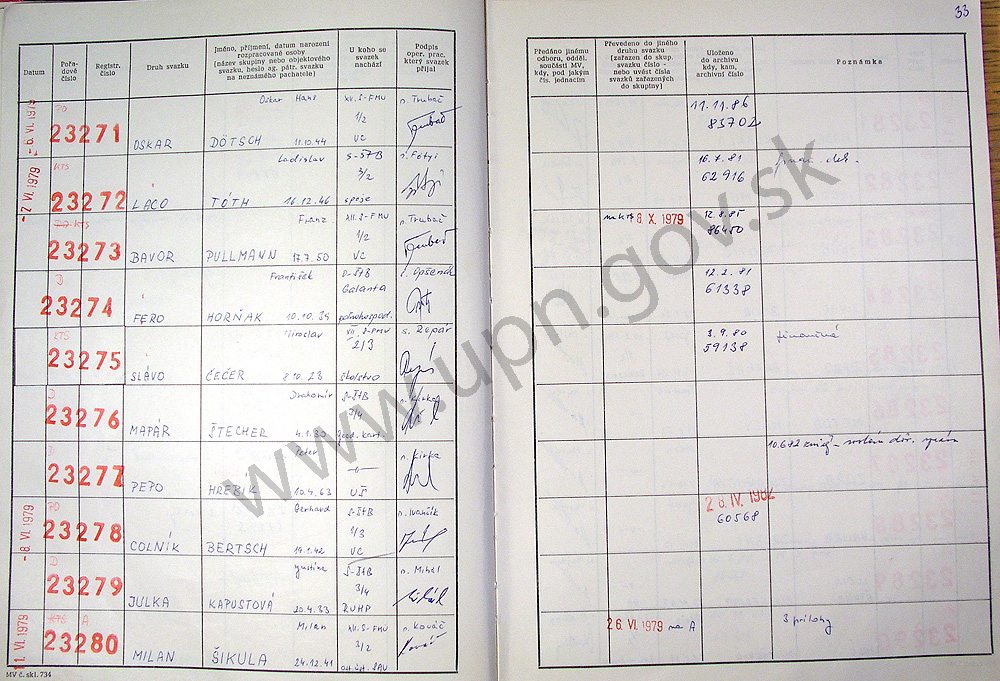 33
Datum
Pořadové číslo
Registr. číslo
Druh svazku
Jméno, příjmení, datum narození
rozpracované osoby
(název skupiny nebo objektového
svazku, heslo ag. pátr. svazku
na neznámého pachatele)
U koho se
svazek
nachází
Podpis
oper. prac.
který svazek
přijal
Předáno jinému
odboru, odděl.
součásti MV,
kdy, pod jakým
čís. jednacím
Převedeno do jiného
druhu svazku
(zařazen do skup.
svazku číslo -
nebo uvést čísla
svazků zařazených
do skupiny)
Uloženo
do archivu
kdy, kam,
archivní číslo
Poznámka
-6. VI. 1979
PO
23271
OSKAR
Oskar Hans
DÖTSCH 11.10.44
XII. S-FMV
1/2
VC
n. Trubač
11.11.86
83702
-7. VI. 1979
KTS
23272
LACO
Ladislav
TÓTH 16.12.46
S-ŠTB
3/2
spoje
16.7.81
62916
KTS
23273
BAVOR
Franz
PULLMANN 17.7.50
XII. S-FMV
1/2
VC
n. Trubač
8. X. 1979
12.8.85
86450
D
23274
FERO
František
HORŇAK 10.10.39
Galanta
12.2.81
61338
KTS
23275
SLÁVO
Miroslav
ČEČER 8.10.23
2/3
školstvo
s. Repář
3.9.80
59138
finančná
D
23276
MAPÁR
Drahomír
ŠTECHER
S-ŠTB
3/4
geod. kart.
D
23277
PEPO
Peter
HREBIK 10.4.63
-"-
UŠ
n. Kirka
-8. VI. 1979
PO
23278
COLNÍK
Gerhard
BERTSCH 14.1.42
S-ŠTB
1/3
VC
n. Ivančík
28. IV. 1982
60568
D
23279
JULKA
KAPUSTOVÁ 20.4.33
S-ŠTB
3/4
n. Mihál
11. VI. 1979
KTS A
23280
MILAN
Milan
ŠIKULA 24.12.41
XII. S-FMV
3/2
n. Kováč
26. VI. 1979 na A
3 prílohy
MV č. skl. 734
www.upn.gov.sk